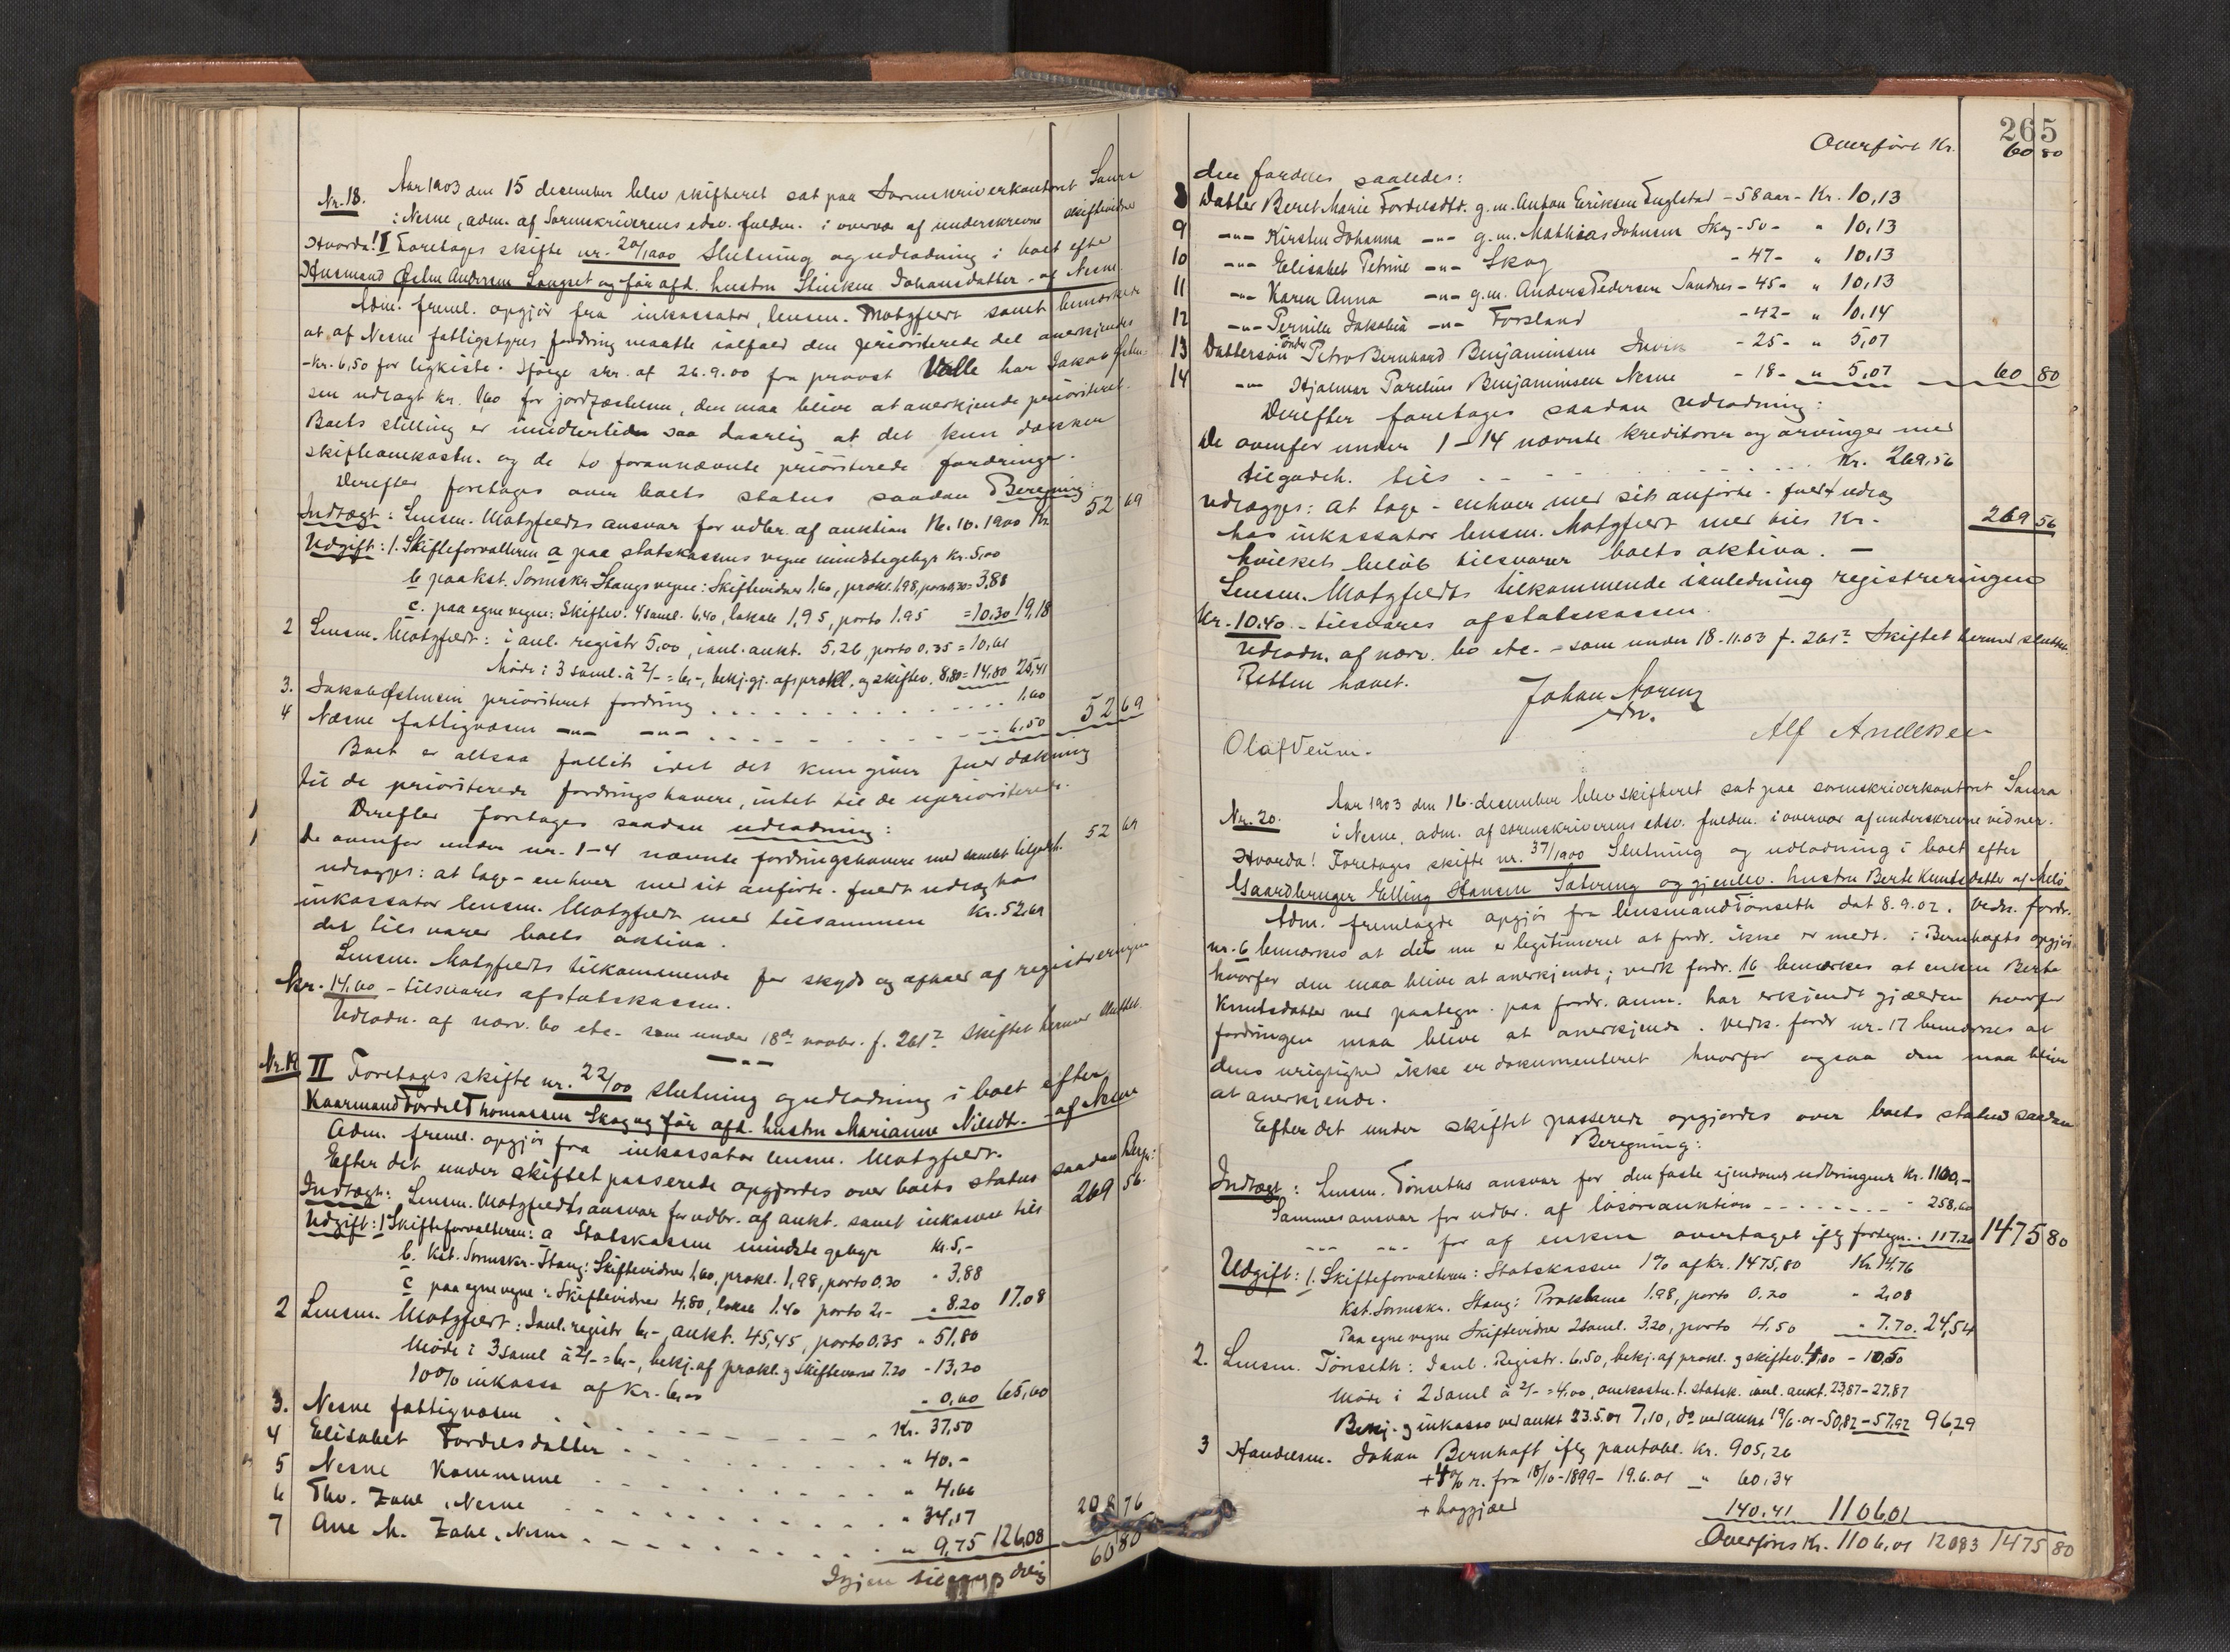 Nr. 18. Aar 1903 den 15 december blev skifteret sat paa Sorenskriverkontoret Saura
i Nesne, adm. af Sorenskriverens edsv. fuldm. i overvær af underskrevne skiftevidner
Hvorda! I Foretages skifte nr. 20/1900 Slutning og udlodning i boet efter
Husmand Østen Andersen Langset og før afd. hustru Johansdatter - af Nesne.
Adm. freml. opgjør fra inkassator, lensm. Motzfeldt samt bemærkede
at af Nesne fattigstyres fordring maatte ialfald den prioriterede del anerkjendes
- kr. 6,50 for ligkiste. Ifølge skr. af 26.9.00 fra provst Valle har Jakob Østen-
sen udlagt kr. 1,60 for jordfæstelsen, den maa blive at anerkjende prioriteret.
Boets stilling er imidlertid saa daarlig at det kun dækker
skifteomkostn. og de to forannævnte prioriterede fordringer.
Derefter foretages over boets status saadan Beregning:
Indtægt: Lensm. Motzfeldts ansvar for udbr. af auktion 16.10.1900 Kr. 52 69
Udgift: 1. Skifteforvalteren a paa statskassens vegne mindstegebyr Kr. 5,00
b paa kst. Sorenskr. Stangs vegne: Skiftevidner 1,60, prokl. 1,98, porto 0,30 = 3,88
c. paa egne vegne: Skiftev. 4 saml. 6.40, lokale 1,95, porto 1.95 = 10.30 19,18
2 Lensm. Motzfeldt: i anl. registr 5,00, i anl. aukt. 5,26, porto 0.35 = 10,61
Møde i 3 saml. à 2/- = 6,-, bekj.gj. af prokl. og skiftev. 8,80 = 14,80 25,41
3. Jakob Østensen prioriteret fordring . . . 1,60
4 Næsne fattigvæsen -"- -"- . . . 6.50 52 69
Boet er altsaa fallit idet det kun giver fuld dækning
til de prioriterede fordringshavere, intet til de uprioriterede.
Derefter foretages saadan udlodning:
De ovenfor under nr. 1-4 nævnte fordringshavere med samlet tilgodeh. 52 69
udlægges: at tage - enhver med sit anførte - fuldt udlæg hos
inkassator lensm. Motzfeldt med tilsammen Kr. 52,69
det tilsvarer boets aktiva.
Lensm. Motzfeldts tilkommende for skyds og afhold af registreringen
Kr. 14,60 - tilsvares af statskassen.
Udlodn. af nærv. bo etc. - som under 18de novbr. f. 261? Skiftet hermed sluttet.
Nr. 19 II Foretages skifte nr. 22/00 slutning og udlodning i boet efter
Kaarmand Fordel Thomassen Skog og før afd. hustru Marianne Nilsdt. - af Nesne
Adm. freml. opgjør fra inkassator lensm. Motzfeldt.
Efter det under skiftet passerede opgjordes over boets status saadan Bergn:
Indtægt: Lensm. Motzfeldts ansvar for udbr. af aukt. samt inkasso tils 269 56.
Udgift: 1 Skifteforvalteren: a Statskassen mindstegebyr Kr. 5,-
b. Kst. Sorenskr. Stang: Skiftevidner 1,60, prokl. 1,98, porto 0.30 " 3,88
c paa egne vegne: Skiftevidner 4.80, lokale 1.40 porto 2,- " 8.20 17,08
2 Lensm. Motzfeldt: I anl. registr 6,-, aukt. 45,45, porto 0.35 " 51,80
Møde i 3 saml à 2/- = 6,-, bekj. af prokl. og skiftevarsel 7.20 - 13,20
10% inkasso af Kr. 6,00 " 0,60 65,60
3. Nesne fattigvæsen . . . Kr. 37,50
4 Elisabet Fordelsdatter . . . " 40,-
5 Nesne Kommune . . . " 4,66
6 Thv. Zahl, Nesne . . . " 34,17
7 Ane M. Zahl, Nesne . . . " 9,75 126,08 208 76
Igjen til arvedeling 60 80
265
Overført Kr. 60 80
den fordeles saaledes:
8 Datter Beret Marie Fordelsdtr. g.m. Anton Eriksen Englstad - 58 aar - Kr. 10,13
9 -"- Kirsten Johanna -"- g.m. Mathias Johnsen Skog - 50 - " 10,13
10 -"- Elisabet Petrine -"- Skog - 47 - " 10,13
11 -"- Karen Anna -"- g.m. Anders Pedersen Sandnes - 45 - " 10,13
12 -"- Pernille Jakobia -"- Forsland - 42 - " 10,14
13 Dattersøn Peter Bernhard Benjaminsen - 25 - " 5,07
14 -"- Hjalmar Parelius Benjaminsen Nesne - 18 - " 5,07 60 80
Derefter foretages saadan Udlodning:
De ovenfor under 1-14 nævnte kreditorer og arvinger med
tilgodeh. tils . . . Kr. 269,56
udlægges: at tage - enhver med sit anførte - fuldt udlæg
hos inkassator lensm. Motzfeldt med tils Kr. 269 56
hvilket beløb tilsvarer boets aktiva. -
Lensm. Motzfeldts tilkommende i anledning registreringen
Kr. 10.40 - tilsvares af statskassen.
Udlodn. af nærv. bo etc. - som under 18.11.03 f. 261? Skiftet hermed sluttet.
Retten hævet.
Johan Lorenz
edsv.
Olaf Veum.
Alf Andersen
Nr. 20. Aar 1903 den 16. december blev skifteret sat paa sorenskriverkontoret Saura
i Nesne, adm. af sorenskriverens edsv. fuldm. i overvær af underskrevne vidner.
Hvorda! Foretages skifte nr. 37/1900 Slutning og udlodning i boet efter
Gaardbruger Elling Hansen Sætering og gjenlev. hustru Berte Knutsdatter af Melø.
Adm. fremlagde opgjør fra lensmand Tönseth dat 8.9.02. Vedr. fordr.
nr. 6 bemærkes at det nu er legitimeret at fordr. ikke er medt. i Bernhofts opgjør
hvorfor den maa blive at anerkjende; vedk. fordr. 16 bemærkes at enken Berte
Knutsdatter ved paategn. paa fordr. anm. har erkjendt gjælden hvorfor
fordringen maa blive at anerkjende. Vedk. fordr nr. 17 bemærkes at
dens urigtighed ikke er dokumenteret hvorfor ogsaa den maa blive
at anerkjende.
Efter det under skiftet passerede opgjordes over boets status saadan
Beregning:
Indtægt: Lensm. Tönseths ansvar for den faste ejendoms udbringende Kr. 1100,-
Sammes ansvar for udbr. af løsøreauktion - - - " 258,60
-"- -"- for af enken overtaget iflg fortegn. . 117.20 1475 80
Udgift: 1. Skifteforvalteren: Statskassen 1% af kr. 1475,80 Kr. 14,76
Kst. Sorenskr. Stang: Proklama 1.98, porto 0.20 " 2,08
Paa egne vegne Skiftevidner 2 saml. 3.20, porto 4.50 " 7.70. 24,54
2. Lensm. Tönseth: I anl. Registr. 6.50, bekj. af prokl. og skiftev. 4,00 - 10,50
Møde i 2 saml à 2/- = 4,00, omkostn. t. statsk. i anl. aukt. 23,87 - 27,87
Bekj. og inkasso ved aukt 23.5.01 7,10, do ved aukt 19/6.01 - 50,82 - 57,92 96,29
3 Handelsm. Johan Bernhoft iflg pantobl. Kr. 905,26
+ 4% r. fra 18/10-1899 - 19.6.01 " 60.34
+ boggjæld 140.41 1106,01
Overføres Kr. 1106,01 120 83 1475 80